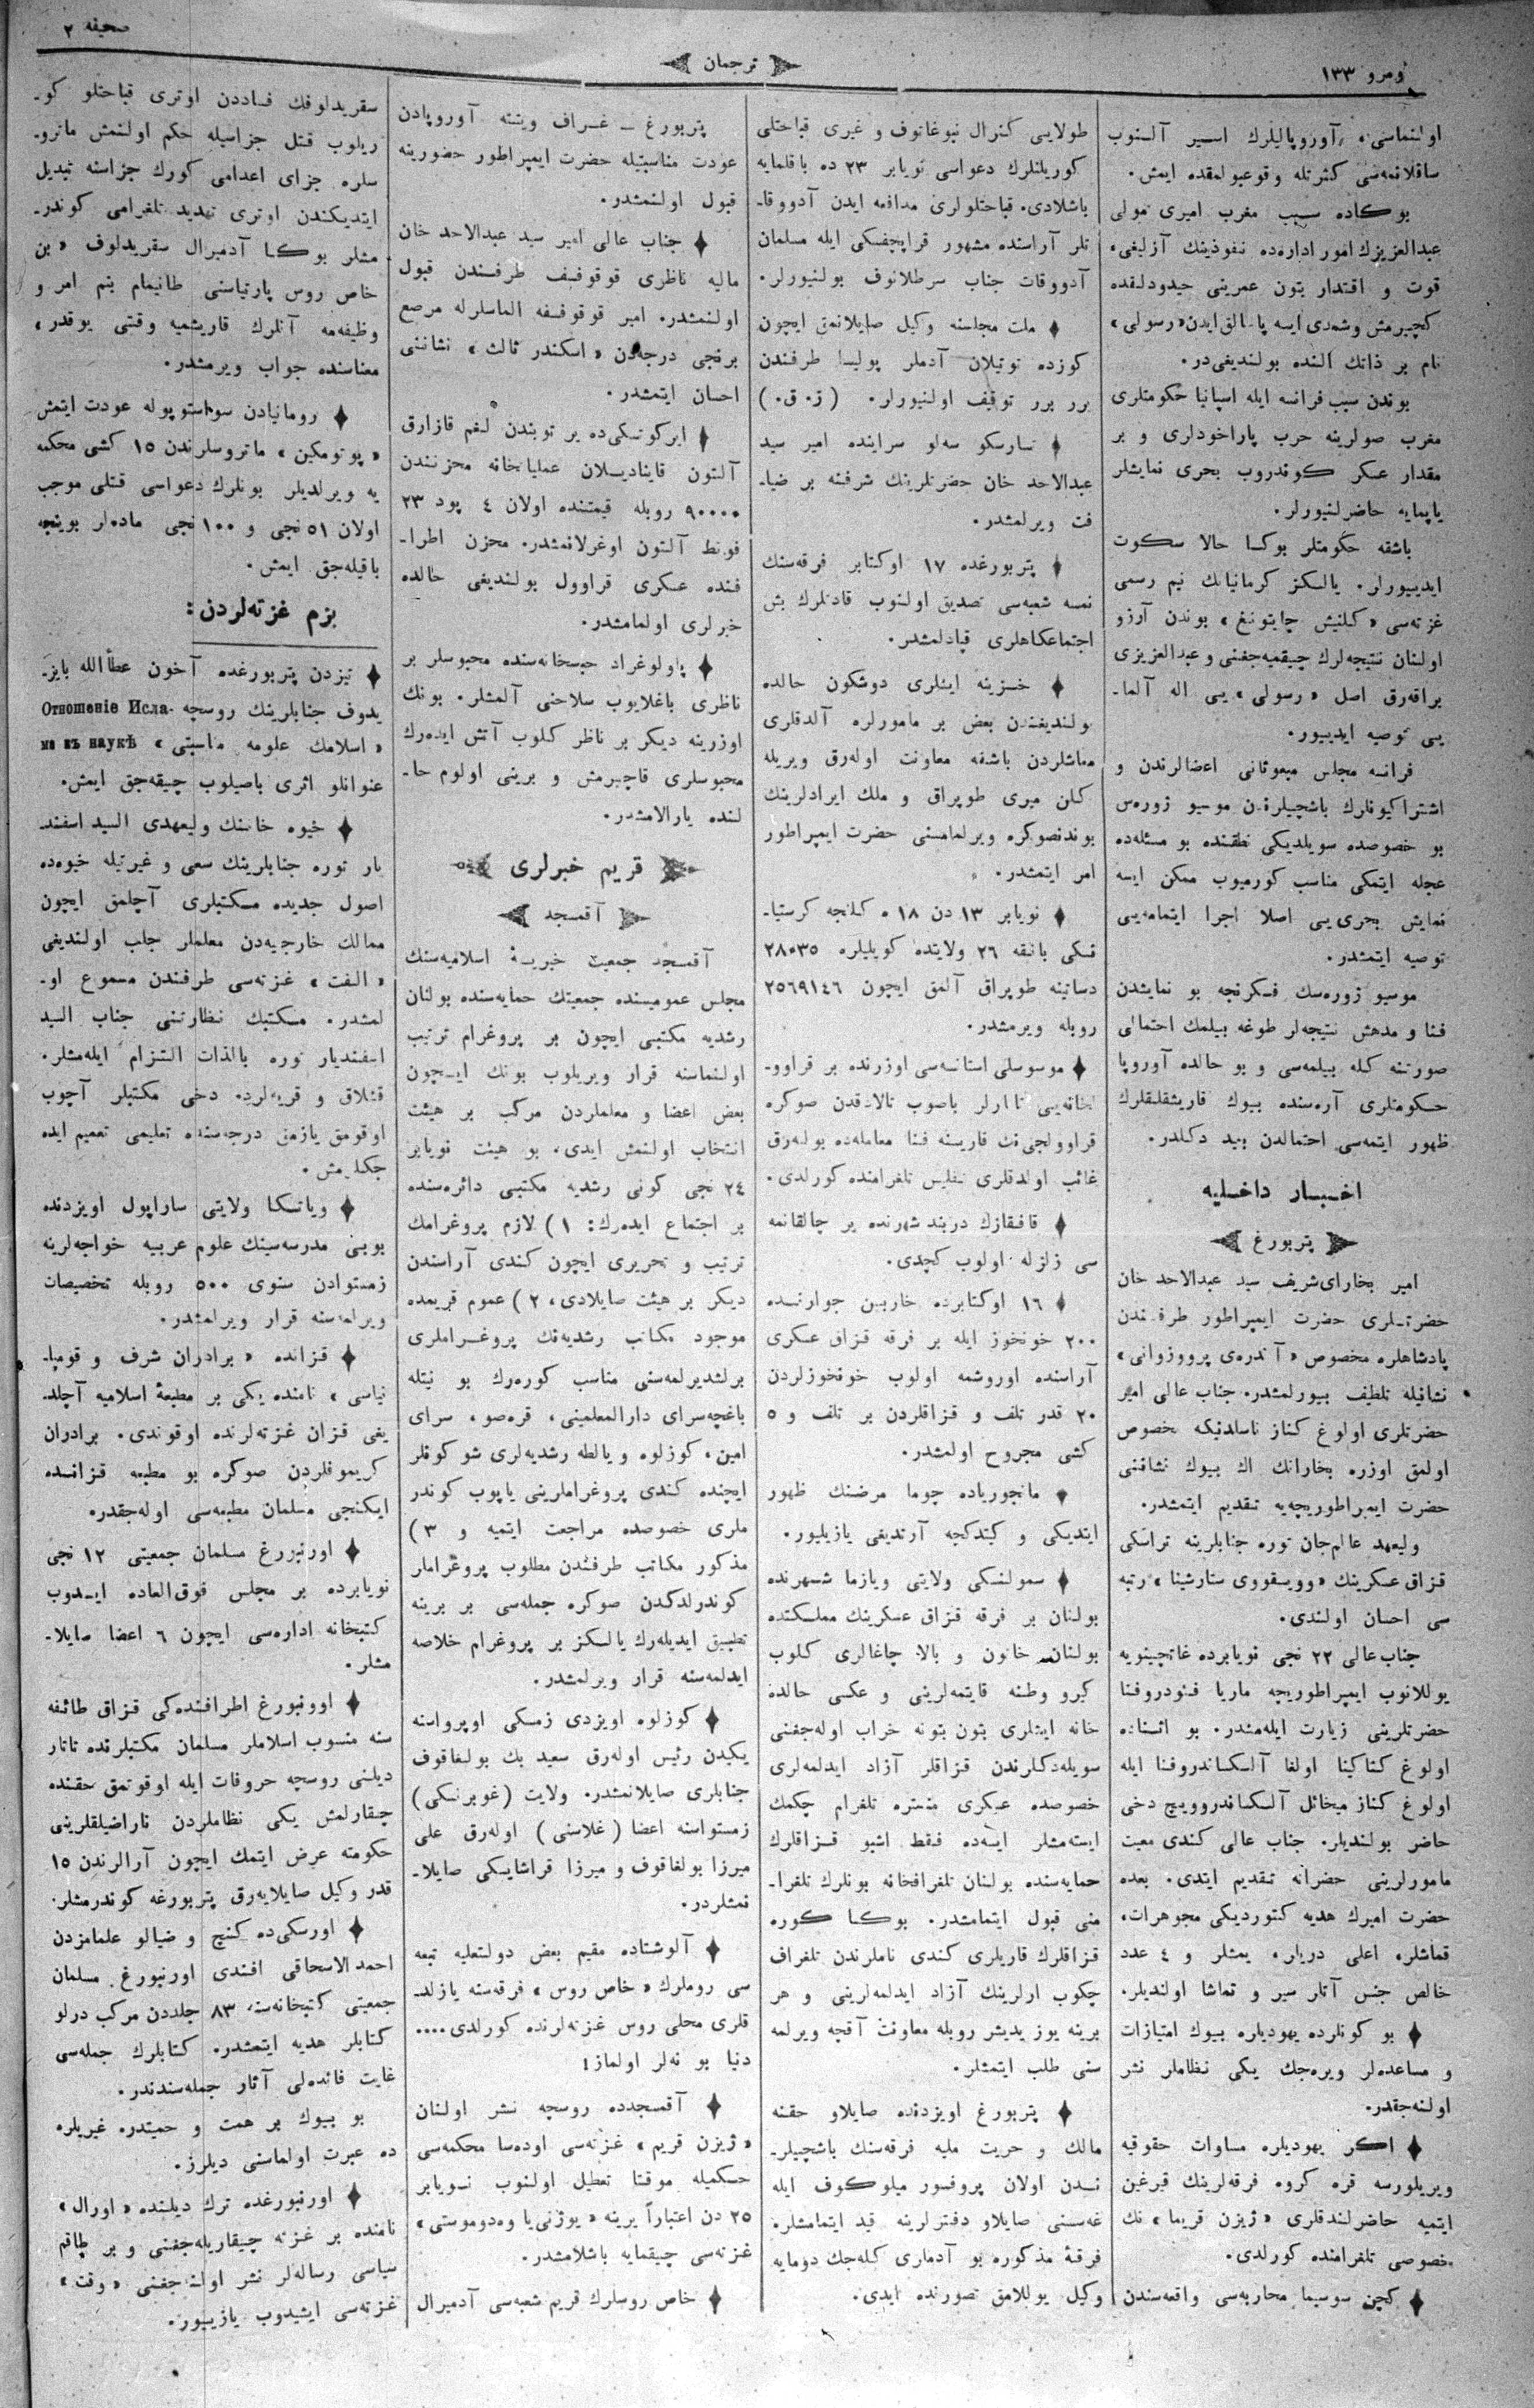 صحيفه ٢
ترجمان
نومرو ١٣٣
اولنماسی، آوروپاليلرك اسير آلنوب
ساقلانمه‌سی كثرتله وقوعبولمقده ايمش.
بوكاده سبب مغرب اميری مولی
عبدالعزيزك امور اداره‌ده نفوذينك آزليغی،
قوت و اقتدار بتون عمرينی حيدودلقده
كچيرمش وشمدی ايسه پاشالق‌ايدن «رسولی»
نام بر ذاتك النده بولنديغی‌در.
بوندن سبب فرانسه ايله اسپانيا حكومتلری
مغرب صولرينه حرب پاراخودلری و بر
مقدار عسكر كوندروب بحری نمايشلر
ياپمايه حاضرلنيورلر.
باشقه حكومتلر بوكا حالا سكوت
ايدييورلر. يالكز كرمانيانك نيم رسمی
غزته‌سی «كلنيش چايتونغ» بوندن آرزو
اولنان نتيجه‌لرك چيقميه‌جغنی و عبدالعزيزی
براقه‌رق اصل «رسولی» يی اله آلما-
يی توصيه ايدييور.
فرانسه مجلس مبعوثانی اعضالرندن و
اشتراكيونلرك باشچيلرندن موسيو ژوره‌س
بو خصوصده سويلديكی نطقنده بو مسئله‌ده
عجله ايتمكی مناسب كورميوب ممكن ايسه
نمايش بحری‌يی اصلا اجرا ايتمامه‌يی
توصيه ايتمشدر.
موسيو ژوره‌سك فكرنجه بو نمايشدن
فنا و مدهش نتيجه‌لر طوغه بيلمك احتمالی
صورتنه كله بيلمه‌سی و بو حالده آوروپا
حكومتلری آره‌سنده بيوك قاريشقلقلرك
ظهور ايتمه‌سی احتمالدن بعيد دكلدر.
اخبار داخليه
پتربورغ
امير بخارای شريف سيد عبدالاحد خان
حضرتلری حضرت ايمپراطور طرفندن
پادشاهلره مخصوص «آندره‌ی پرووزوانی»
نشانيله تلطيف بيورلمشدر. جناب عالی امير
حضرتلری اولوغ كناز ناسلدنيكه مخصوص
اولمق اوزره بخارانك اك بيوك نشاننی
حضرت ايمبراطوريچه‌يه تقديم ايتمشدر.
وليعهد عالم‌جان توره جنابلرينه تراسكی
قزاق عسكرينك «وويسقووی ستارشينا» رتبه
سی احسان اولندی.
جناب عالی ٢٢ نجی نويابرده غاتچينويه
يوللانوب ايمپراطوريچه ماريا فئودروفنا
حضرتلرينی زيارت ايله‌مشدر. بو اثناده
اولوغ كناكينا اولغا آلكساندروفنا ايله
اولوغ كناز ميخائل آلكساندروويچ دخی
حاضر بولنديلر. جناب عالی كندی معيت
مامورلرينی حضرانه تقديم ايتدی. بعده
حضرت اميرك هديه كتورديكی مجوهرات،
قماشلر، اعلی دريلر، يمشلر و ٤ عدد
خالص جنس آتلر سير و تماشا اولنديلر.
بو كونلرده يهوديلره بيوك امتيازات
و مساعده‌لر ويره‌جك يكی نظاملر نشر
اولنه‌جقدر.
اكر يهوديلره مساوات حقوقيه
ويريلورسه قره كروه فرقه‌لرينك قيرغين
ايتميه حاضرلندقلری «ژيزن قريما» نك
خصوصی تلغرامنده كورلدی.
كچن سوسيما محاربه‌سی واقعه‌سندن
طولايی كنرال نيوغاتوف و غيری قباحتلی
كوريلنلرك دعواسی نويابر ٢٣ ده باقلمايه
باشلادی. قباحتلولری مدافعه ايدن آدووقا-
تلر آراسنده مشهور قراپچفسكی ايله مسلمان
آدووقات جناب سرطلانوف بولنيورلر.
ملت مجلسنه وكيل صايلانمق ايچون
كوزده توتيلان آدملر پوليسا طرفندن
برر برر توقيف اولنيورلر. (ژ. ق.)
تسارسكو سه‌لو سراينده امير سيد
عبدالاحد خان حضرتلرينك شرفنه بر ضيا-
فت ويرلمشدر.
پتربورغده ١٧ اوكتابر فرقه‌سنك
نمسه شعبه‌سی تصديق اولنوب قادنلرك بش
اجتماعكاهلری قپادلمشدر.
خزينه ايشلری دوشكون حالده
بولنديغندن بعض بر مامورلره آلدقلری
معاشلردن باشقه معاونت اوله‌رق ويريله
كلن ميری طوپراق و ملك ايرادلرينك
بوندنصوكره ويرلمامسنی حضرت ايمپراطور
امر ايتمشدر.
نويابر ١٣ دن ١٨ ه كلنجه كرستيا-
نسكی بانقه ٢٦ ولايتده كويليلره ٢٨٠٣٥
دساتينه طوپراق آلمق ايچون ٢٥٦٩١٤٦
روبله ويرمشدر.
موسوسلی استانسه‌سی اوزرنده بر قراوو-
لخانه‌يی تاتارلر باصوب تالادقدن صوكره
قراوولجی‌نك قاريسنه فنا معامله‌ده بوله‌رق
غائب اولدقلری تفليس تلغرامنده كورلدی.
قافقازك دربند شهرنده بر چالقانمه
سی زلزله اولوب كچدی.
١٦ اوكتابرده خاربين جوارنده
٢٠٠ خونخوز ايله بر فرقه قزاق عسكری
آراسنده اوروشمه اولوب خونخوزلردن
٢٠ قدر تلف و قزاقلردن بر تلف و ٥
كشی مجروح اولمشدر.
مانجورياده چوما مرضنك ظهور
ايتديكی و كيتدكجه آرتديغی يازيليور.
سمولنسكی ولايتی ويازما شهرنده
بولنان بر فرقه قزاق عسكرينك مملكتنده
بولنان خاتون و بالا چاغالری كلوب
كيرو وطنه قايتمه‌لرينی و عكسی حالده
خانه ايشلری بتون بتونه خراب اوله‌جغنی
سويله‌دكلرندن قزاقلر آزاد ايدلمه‌لری
خصوصده عسكری منستره تلغرام چكمك
ايسته‌مشلر ايسه‌ده فقط اشبو قزاقلرك
حمايه‌سنده بولنان تلغرافخانه بونلرك تلغرا-
منی قبول ايتمامشدر. بوكا كوره
قزاقلرك قاريلری كندی ناملرندن تلغراف
چكوب ارلرينك آزاد ايدلمه‌لرينی و هر
برينه يوز يديشر روبله معاونت آقچه ويرلمه
سنی طلب ايتمشلر.
پتربورغ اويزدنده صايلاو حقنه
مالك و حريت مليه فرقه‌سنك باشچيلر-
ندن اولان پروفسور ميلوكوف ايله
غه‌سنی صايلاو دفترلرينه قيد ايتمامشلر.
فرقهٔ مذكوره بو آدملری كله‌جك دومايه
وكيل يوللامق تصورنده ايدی.
پتربورغ ــ غراف ويتته آوروپادن
عودت مناسبتيله حضرت ايمپراطور حضورينه
قبول اولنمشدر.
جناب عالی امير سيد عبدالاحد خان
ماليه ناظری قوقوفسف طرفندن قبول
اولنمشدر. امير قوقوفسفه الماسلرله مرصع
برنجی درجه‌دن «اسكندر ثالث» نشاننی
احسان ايتمشدر.
ايركوتسكی‌ده ير توبندن لغم قازارق
آلتون قاينادیلان عملياتخانه محزنندن
٩٠٠٠٠ روبله قيمتنده اولان ٤ پود ٢٣
فونط آلتون اوغرلانمشدر. محزن اطرا-
فنده عسكری قراوول بولنديغی حالده
خبرلری اولمامشدر.
پاولوغراد حبسخانه‌سنده محبوسلر بر
ناظری باغلايوب سلاحنی آلمشلر. بونك
اوزرينه ديكر بر ناظر كلوب آتش ايده‌رك
محبوسلری قاچيرمش و برينی اولوم حا-
لنده يارالامشدر.
قريم خبرلری
آقمسجد
آقمسجد جمعيت خيريهٔ اسلاميه‌سنك
مجلس عموميسنده جمعيتك حمايه‌سنده بولنان
رشديه مكتبی ايچون بر پروغرام ترتيب
اولنماسنه قرار ويريلوب بونك ايچون
بعض اعضا و معلملردن مركب بر هيئت
انتخاب اولنمش ايدی، بو هيئت نويابر
٢٤ نجی كونی رشديه مكتبی دائره‌سنده
بر اجتماع ايده‌رك: ١) لازم پروغرامك
ترتيب و تحريری ايچون كندی آراسندن
ديكر بر هيئت صايلادی، ٢) عموم قريمده
موجود مكاتب رشديه‌نك پروغراملری
برلشديرلمه‌سنی مناسب كوره‌رك بو نيتله
باغچه‌سرای دارالمعلمينی، قره‌صو، سرای
امين، كوزلوه و يالطه رشديه‌لری شو كونلر
ايچنده كندی پروغراملرينی ياپوب كوندر
ملری خصوصده مراجعت ايتميه و ٣)
مذكور مكاتب طرفندن مطلوب پروغراملر
كوندرلدكدن صوكره جمله‌سی بر برينه
تطبيق ايديله‌رك يالكز بر پروغرام خلاصه
ايدلمه‌سنه قرار ويرلمشدر.
كوزلوه اويزدی زمسكی اوپرواسنه
يكيدن رئيس اوله‌رق سعيد بك بولغاقوف
جنابلری صايلانمشدر. ولايت (غوبرنسكی)
زمستواسنه اعضا (غلاسنی) اوله‌رق علی
ميرزا بولغاقوف و ميرزا قراشايسكی صايلا-
نمشلردر.
آلوشتاده مقيم بعض دولتعليه تبعه
سی روملرك «خاص روس» فرقه‌سنه يازلد-
قلری محلی روس غزته‌لرنده كورلدی....
دنيا بو نه‌لر اولماز!
آقمسجدده روسچه نشر اولنان
«ژيزن قريم» غزته‌سی اوده‌سا محكمه‌سی
حكميله موقتا تعطيل اولنوب نويابر
٢٥ دن اعتباراً يرينه «يوژنی‌يا وه‌دوموستی»
غزته‌سی چيقمايه باشلامشدر.
خاص روسلرك قريم شعبه‌سی آدميرال
سقريدلوفك فساددن اوتری قباحتلو كو-
ريلوب قتل جزاسيله حكم اولنمش ماترو-
سلره جزای اعدامی كورك جزاسنه تبديل
ايتديكندن اوتری تهديد تلغرامی كوندر-
مشلر بوكا آدميرال سقريدلوف «بن
خاص روس پارتياسنی طانيمام بنم امر و
وظيفه‌مه آنلرك قاريشميه وقتی يوقدر»
معناسنده جواب ويرمشدر.
رومانيادن سواستوپوله عودت ايتمش
«پوتومكين» ماتروسلرندن ١٥ كشی محكمه
يه ويرلديلر بونلرك دعواسی قتلی موجب
اولان ٥١ نجی و ١٠٠ نجی ماده‌لر بوينچه
باقيله‌جق ايمش.
بزم غزته‌لردن:
تيزدن پتربورغده آخون عطأالله بايز-
يدوف جنابلرينك روسچه Отношеніе Исла-
«اسلامك علومه مناسبتی» ма къ наукѣ
عنوانلو اثری باصيلوب چيقه‌جق ايمش.
خيوه خانينك وليعهدی السيد اسفند-
يار توره جنابلرينك سعی و غيرتيله خيوه‌ده
اصول جديده مكتبلری آچلمق ايچون
ممالك خارجيه‌دن معلملر جلب اولنديغی
«الفت» غزته‌سی طرفندن مسموع او-
لمشدر. مكتبك نظارتنی جناب السيد
اسفنديار توره بالذات التزام ايله‌مشلر.
قشلاق و قريه‌لرده دخی مكتبلر آچوب
اوقومق يازمق درجه‌سنده تعليمی تعميم ايده
جكلرمش.
وياتكا ولايتی ساراپول اويزدنده
بوبی مدرسه‌سينك علوم عربيه خواجه‌لرينه
زمستوادن سنوی ٥٠٠ روبله تخصيصات
ويرلمه‌سنه قرار ويرلمشدر.
قزانده «برادران شرف و قومپا-
نياسی» نامنده يكی بر مطبعهٔ اسلاميه آچلد-
يغی قزان غزته‌لرنده اوقوندی. برادران
كريموفلردن صوكره بو مطبعه قزانده
ايكنجی مسلمان مطبعه‌سی اوله‌جقدر.
اورنبورغ مسلمان جمعيتی ١٢ نجی
نويابرده بر مجلس فوق‌العاده ايدوب
كتبخانه اداره‌سی ايچون ٦ اعضا صايلا-
مشلر.
اورنبورغ اطرافنده‌كی قزاق طائفه
سنه منسوب اسلاملر مسلمان مكتبلرنده تاتار
ديلنی روسچه حروفات ايله اوقوتمق حقنده
چيقارلمش يكی نظاملردن ناراضيلقلرينی
حكومته عرض ايتمك ايچون آرالرندن ١٥
قدر وكيل صايلايه‌رق پتربورغه كوندرمشلر.
اورسكی‌ده كنج و ضيالو علمامزدن
احمد الاسحاقی افندی اورنبورغ مسلمان
جمعيتی كتبخانه‌سنه ٨٣ جلددن مركب درلو
كتابلر هديه ايتمشدر. كتابلرك جمله‌سی
غايت فائده‌لی آثار جمله‌سندندر.
بو بيوك بر همت و حميتدر. غيريلره
ده عبرت اولماسنی ديلرز.
اورنبورغده ترك ديلنده «اورال»
نامنده بر غزته چيقاريله‌جغنی و بر طاقم
سياسی رساله‌لر نشر اولنه‌جغنی «وقت»
غزته‌سی ايشيدوب يازييور.